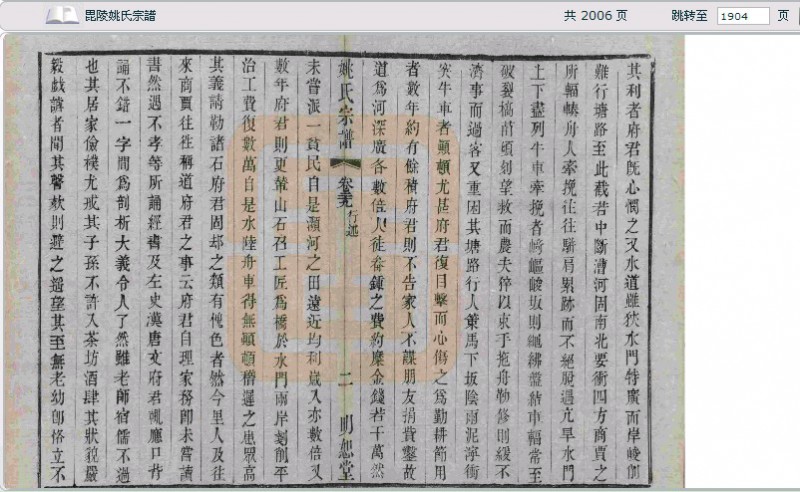 毘陵姚氏宗譜
共 2006 页
跳转至 1904 页
其利者府君既心憫之又水道雖狹水門特廣而岸峻削
難行塘路至此截若中斷漕河固南北要衝四方商賈之
所輻輳舟人牽挽往往駢肩累跡而不絕脫遇亢旱水門
上下盡列牛車牽挽者崎嶇峻坂則纜紼盤結車輻常至
破裂槁苗頃刻望救而農夫猝以束手拖舟物修則緩不
濟事而過客又重困其塘路行人策馬下坂陰雨泥濘衝
突牛車者顛頓尤甚府君復目擊而心傷之爲勤耕節用
者數年約有餘積府君則不告家人不謀朋友捐貲鑿故
道爲河深廣各數倍人徒畚鍤之費約糜金錢若干萬然
姚氏宗譜 卷 行述 二 明恕堂
未嘗派一貧民自是瀕河之田遠近均利歲入亦數倍又
數年府君則更輦山石召工匠爲橋於水門兩岸剗削平
治工費復數萬自是水陸舟車得無顛頓稽遲之患眾高
其義請勒諸石府君固却之類有愧色者然今里人及往
來商賈往往稱道府君之事云府君自理家務即未嘗讀
書然遇不孝等所誦經書及左史漢唐文府君輒應口背
誦不錯一字間爲剖析大義令人了然雖老師宿儒不過
也其居家儉樸尤戒其子孫不許入茶坊酒肆其狀貌嚴
毅戲謔者聞其謦欬則避之遥望其至無老幼卽偹立不